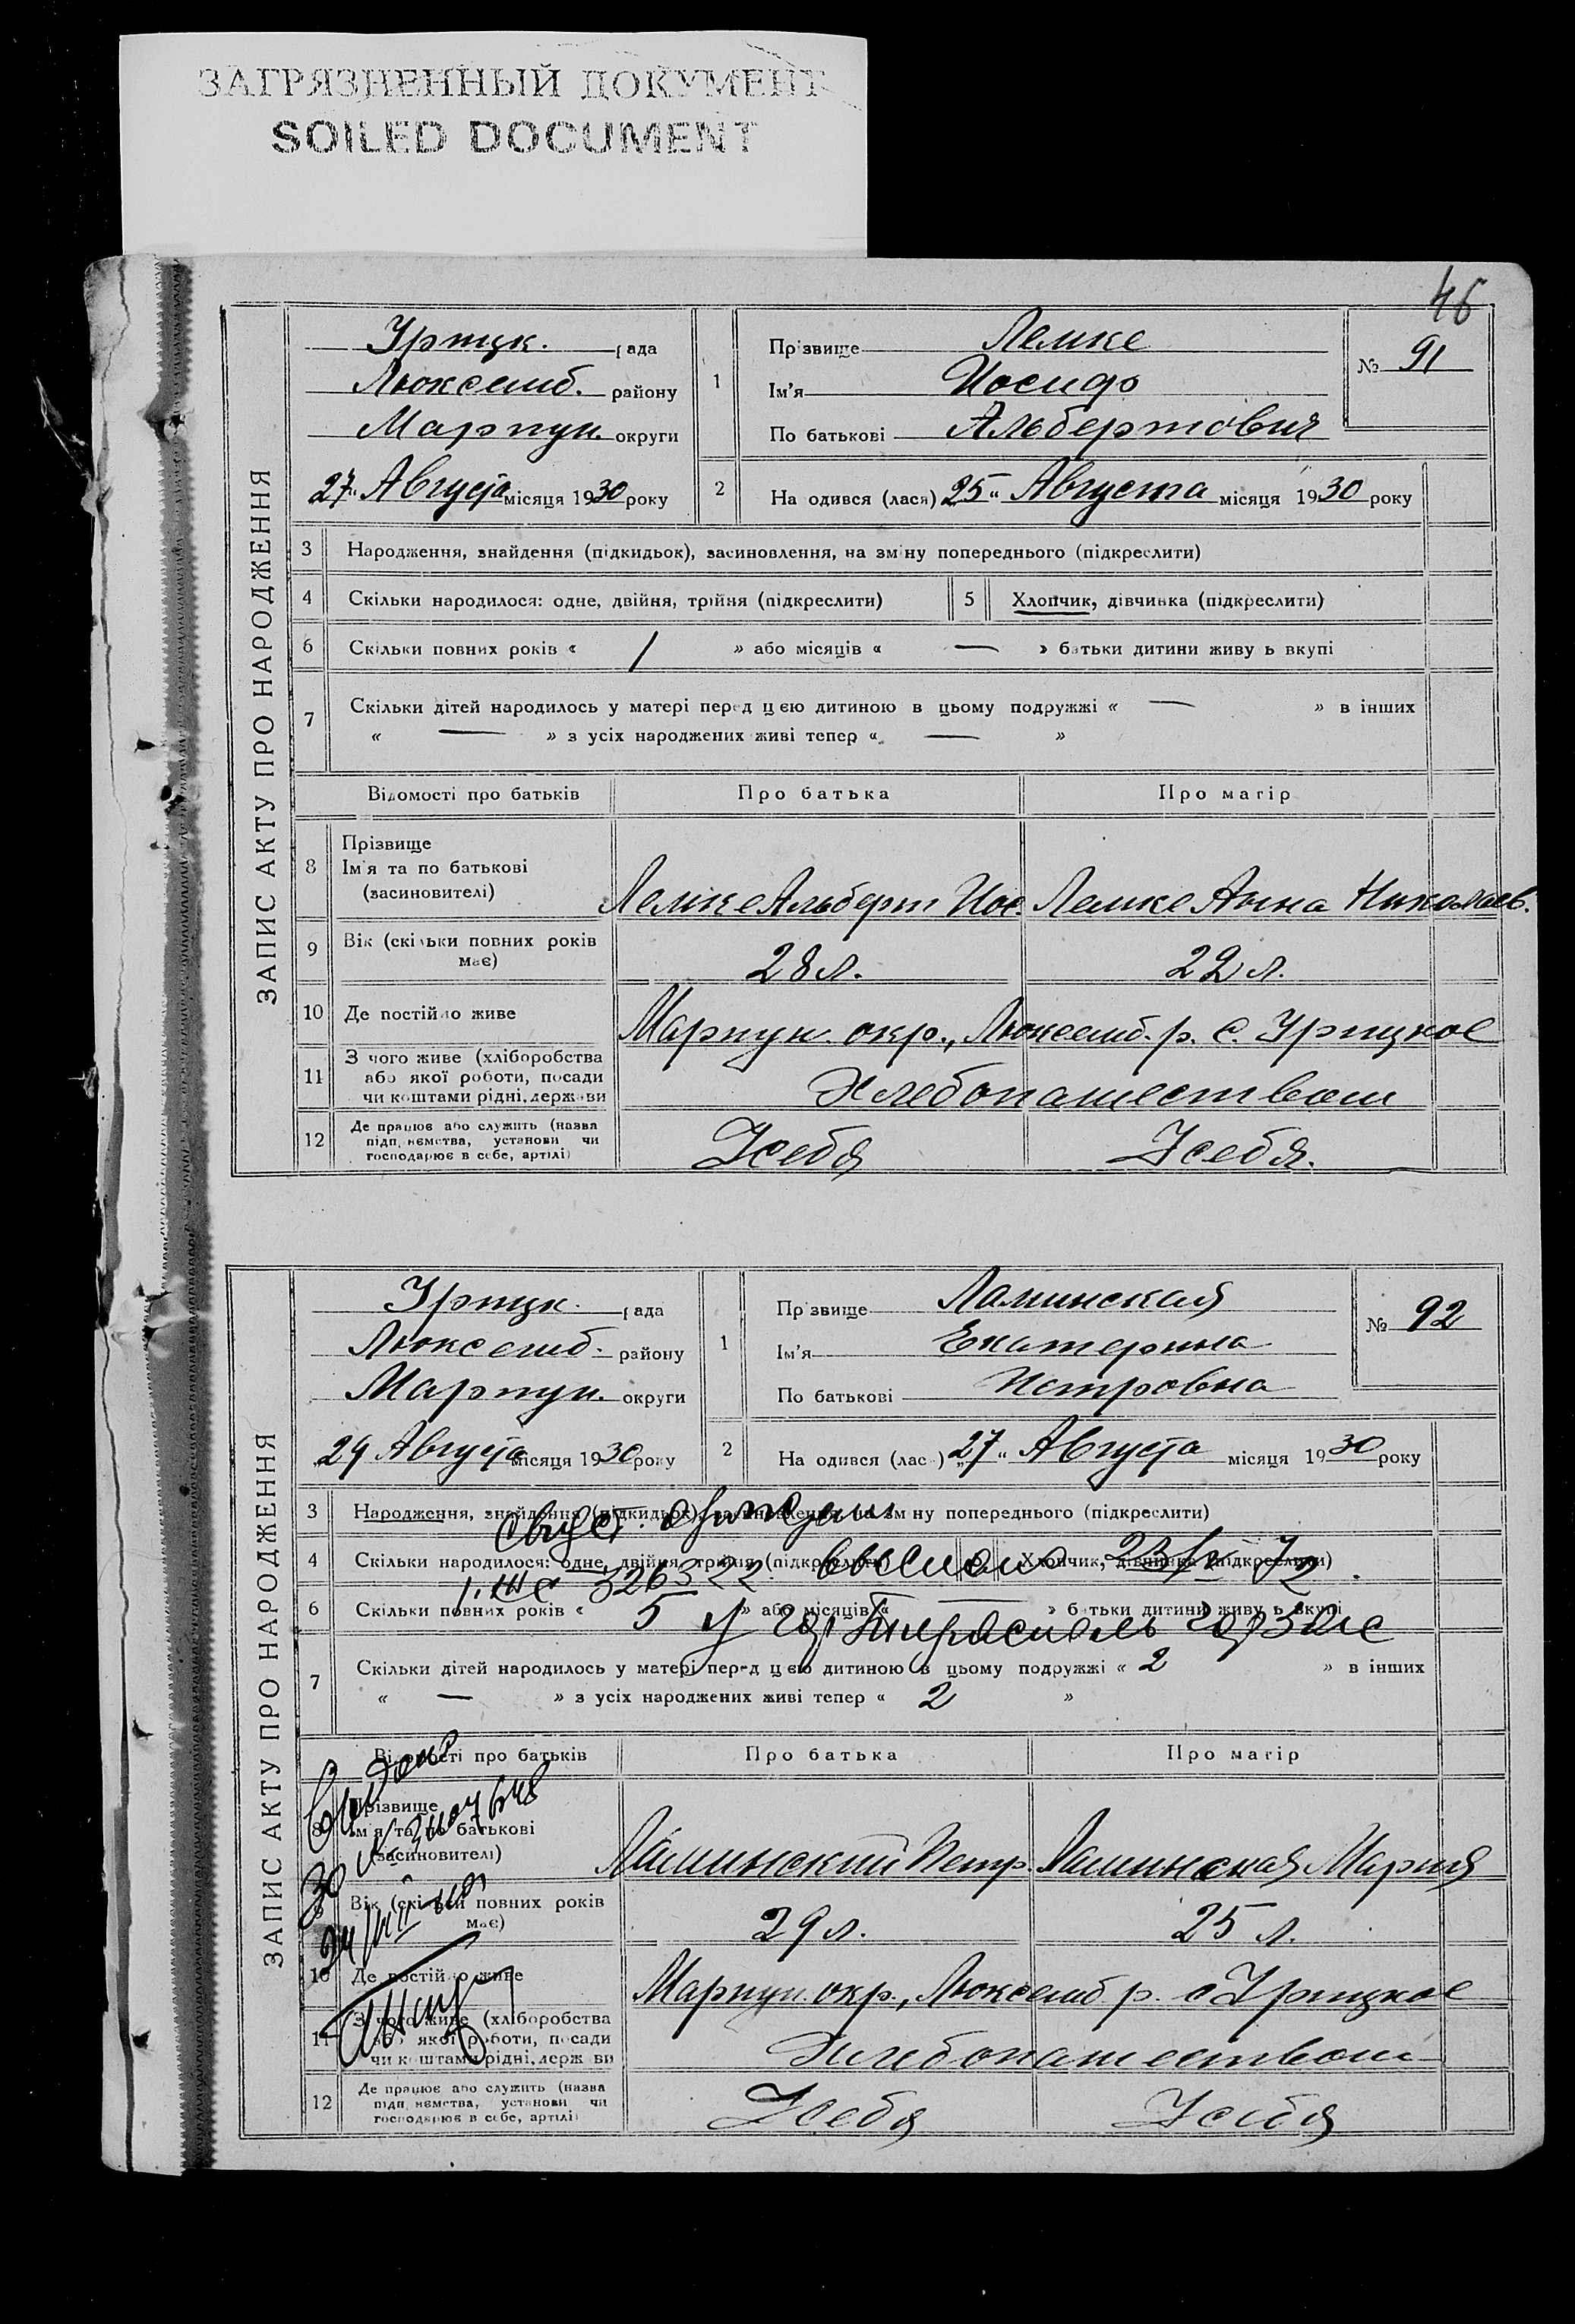 ЗАГРЯЗНЕННЫЙ ДОКУМЕНТ
SOILED DOCUMENT
46
ЗАПИС АКТУ ПРО НАРОДЖЕННЯ
Урицк. рада
Люксемб. району
Мариуп. округи
27 Августа місяця 1930 року
1
Прізвище Лемке
Ім'я Иосиф
По батькові Альбертович
№ 91
2 На одився (лася) 25 „ Августа місяця 1930 року
3 Народження, знайдення (підкидьок), засиновлення, на зміну попереднього (підкреслити)
4 Скільки народилося: одне, двійня, трійня (підкреслити) 5 Хлопчик, дівчинка (підкреслити)
6 Скільки повних років « 1 » або місяців « — » батьки дитини живу ь вкупі
7 Скільки дітей народилось у матері перед цією дитиною в цьому подружжі « — » в інших
« — » з усіх народжених живі тепер « — »
Відомості про батьків Про батька Про матір
8 Прізвище
Ім'я та по батькові
(засиновителі) Лемке Альберт Иос. Лемке Анна Николаев.
9 Вік (скільки повних років
має) 28 л. 22 л.
10 Де постійно живе Мариуп. окр., Люксемб. р. с. Урицкое
11 З чого живе (хліборобства
або якої роботи, посади
чи коштами рідні, держави Хлебопашеством
12 Де працює або служить (назва
підп. немства, установи чи
господарює в себе, артілі) У себя У себя.
ЗАПИС АКТУ ПРО НАРОДЖЕННЯ
Урицк. рада
Люксемб. району
Мариуп. округи
29 Августа місяця 1930 року
1
Прізвище Ламинская
Ім'я Екатерина
По батькові Петровна
№ 92
2 На одився (лас ) 27 „ Августа місяця 1930 року
3 Народження, знайдення (підкидьок), засиновлення, на зміну попереднього (підкреслити)
4 Скільки народилося: одне, двійня, трійня (підкреслити) 5 Хлопчик, дівчинка (підкреслити)
326322 выслано 72
6 Скільки повних років « 5 » або місяців « — » батьки дитини живу ь вкупі
Тирасполь
7 Скільки дітей народилось у матері перед цією дитиною в цьому подружжі « 2 » в інших
« — » з усіх народжених живі тепер « 2 »
Відомості про батьків Про батька Про матір
8 Прізвище
Ім'я та по батькові
(засиновителі) Ламинский Петр. Ламинская Мария
9 Вік (скільки повних років
має) 29 л. 25 л.
10 Де постійно живе Мариуп. окр., Люксемб р. с Урицкое
11 З чого живе (хліборобства
або якої роботи, посади
чи коштами рідні, держ ви Хлебопашеством
12 Де працює або служить (назва
підп. немства, установи чи
господарює в себе, артілі) У себя У себя